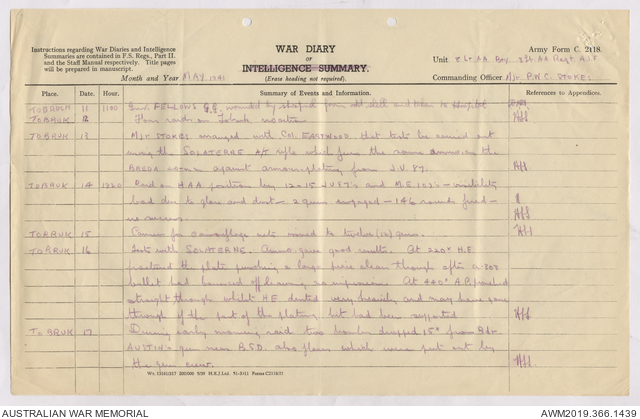 Instructions regarding War Diaries and Intelligence
Summaries are contained in F.S. Regs., Part II.
and the Staff Manual respectively. Title pages
will be prepared in manuscript.
WAR DIARY
or
INTELLIGENCE SUMMARY.
(Erase heading not required).
Month and Year MAY 1941
Army Form C. 2118.
Unit 8 Lt. AA Bty. 3 Lt. AA Regt A.I.F
Commanding Officer Mjr. P.W.C. STOKES
Place. Date. Hour. Summary of Events and Information. References to Appendices.
TOBRUCH 11 1100 FELLOWS G.E. wounded by from old shell and taken to Hospital
TOBRUK 12 Four raids on Tobruk
TOBRUK 13 Mjr. STOKES arranged with Col. EASTWOOD that tests be carried out
using the SOLATERRE A/T rifle which fires the same ammo. as the
BREDA against armour-plating from J.U. 87.
TOBRUK 14 Raid on HAA position by 12 x 15 JU 87's and M.E. 109's - visibility
bad due to glare and dust - 2 guns engaged - 146 rounds fired -
no success.
TOBRUK 15 for camouflage nets moved to twelve (12) guns.
TOBRUK 16 Tests with SOLATERNE. Ammo. gave good results. At 220x H.E.
the plate punching a large piece clean through after a .303
bullet had bounced off leaving no impression. At 440x A.P. pushed
straight through whilst HE dented very heavily and may have gone
through if the part of the plating hit had been supported
TOBRUK 17 During early morning raid two bombs dropped 15x from
AUSTIN's gun near BSD. also flares which were put out by
the gun crew.
Wt. 13441/517 200,000 9/39 H.K.J Ltd. 51-3111 Forms C2118/21
AUSTRALIAN WAR MEMORIAL
AWM2019.366.1439